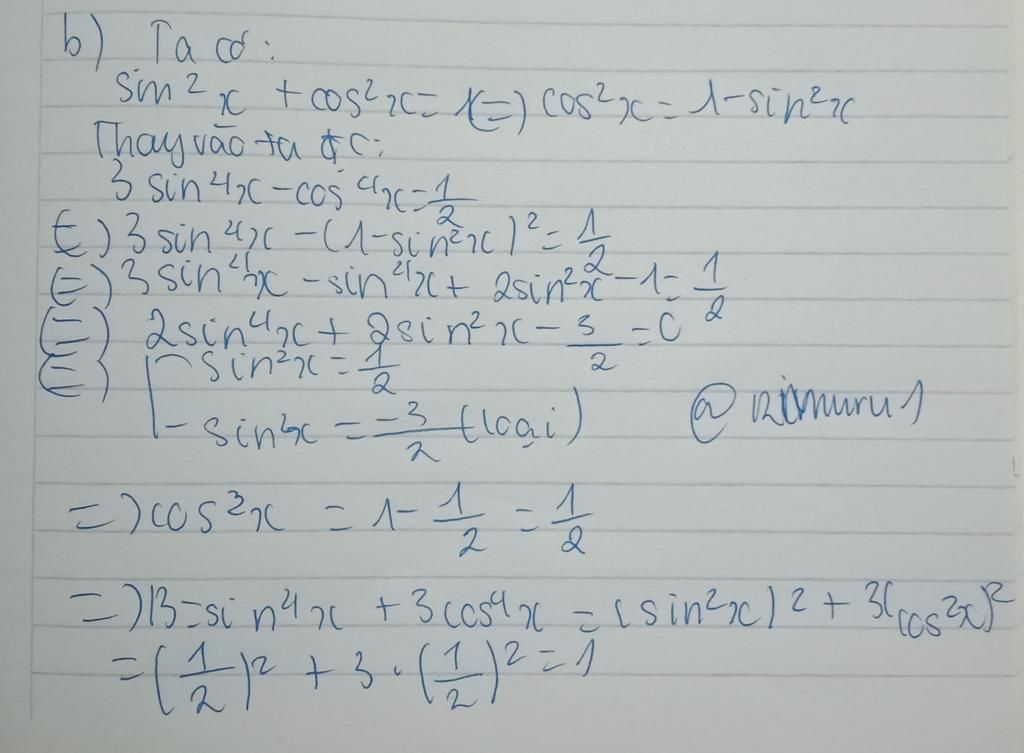 b) Ta có:
sin²x + cos²x = 1 (=) cos²x = 1 - sin²x
Thay vào ta đc:
3 sin⁴x - cos⁴x = 1/2
(=) 3 sin⁴x - (1 - sin²x)² = 1/2
(=) 3 sin⁴x - sin⁴x + 2sin²x - 1 = 1/2
(=) 2sin⁴x + 2sin²x - 3/2 = 0
(=) [ sin²x = 1/2
- sin²x = -3/2 (loại)
@rimuru1
=) cos²x = 1 - 1/2 = 1/2
=) B = sin⁴x + 3cos⁴x = (sin²x)² + 3(cos²x)²
= (1/2)² + 3 . (1/2)² = 1